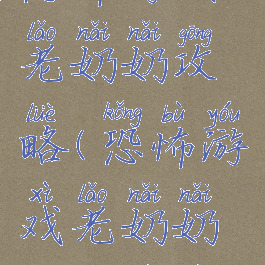 lǎo nǎi nǎi gōng
老奶奶攻
lüè kǒng bù yóu
略(恐怖游
xì lǎo nǎi nǎi
戏老奶奶